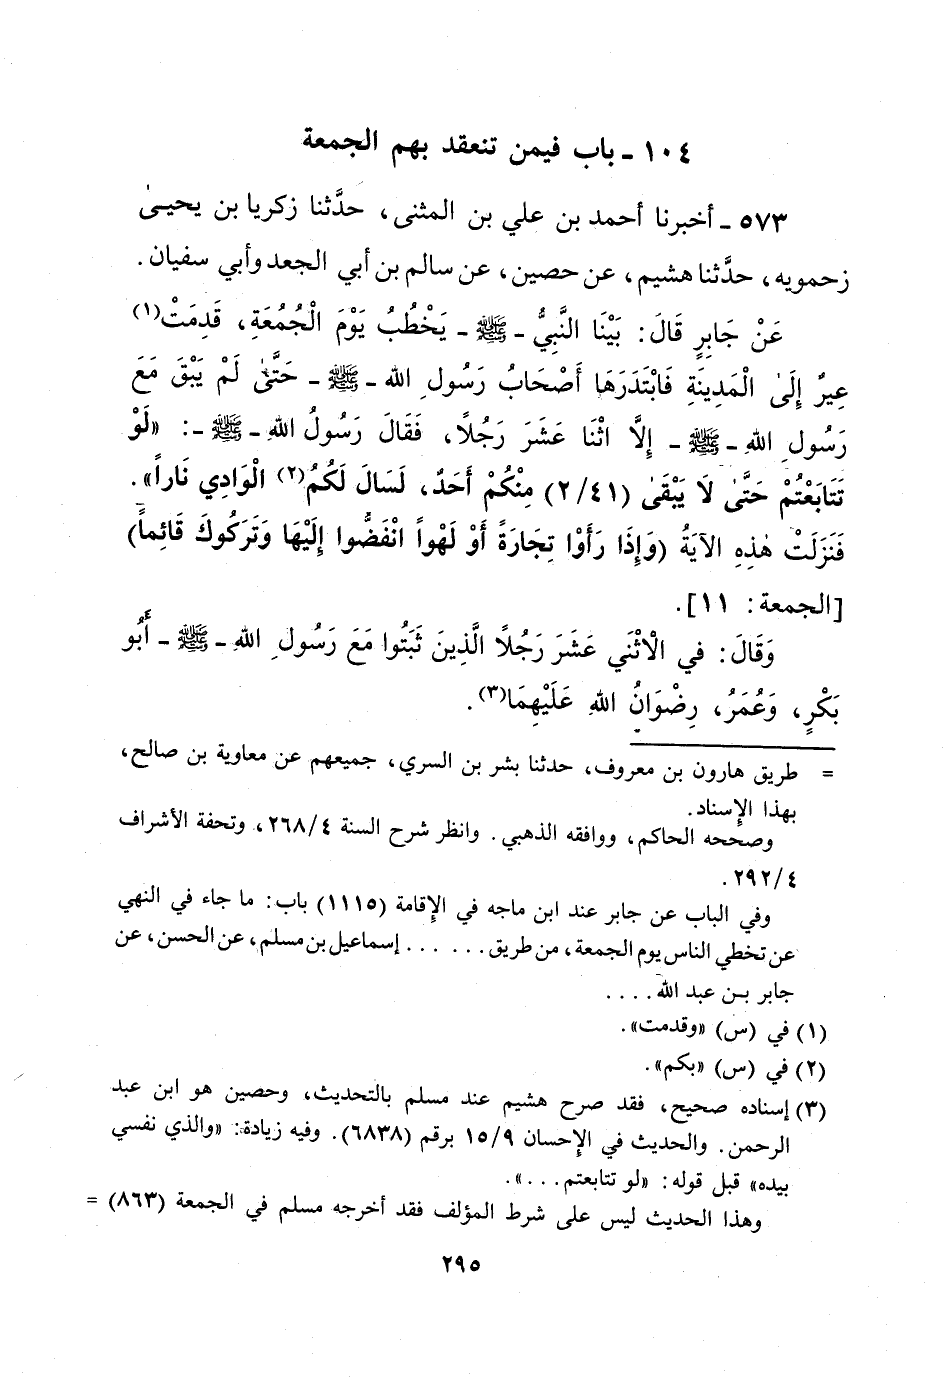 ١٠٤ ـ باب فيمن تنعقد بهم الجمعة
٥٧٣ ـ أخبرنا أحمد بن علي بن المثنى، حدَّثنا زكريا بن يحيىٰ
زحمويه، حدَّثنا هشيم، عن حصين، عن سالم بن أبي الجعد وأبي سفيان.
عَنْ جَابِرٍ قَالَ: بَيْنَا النَّبِيُّ ـ ﷺ ـ يَخْطُبُ يَوْمَ الْجُمُعَةِ، قَدِمَتْ(١)
عِيرٌ إِلَىٰ الْمَدِينَةِ فَابْتَدَرَهَا أَصْحَابُ رَسُولِ اللهِ ـ ﷺ ـ حَتَّىٰ لَمْ يَبْقَ مَعَ
رَسُولِ اللهِ ـ ﷺ ـ إِلَّا اثْنَا عَشَرَ رَجُلاً، فَقَالَ رَسُولُ اللهِ ـ ﷺ ـ: «لَوْ
تَتَابَعْتُمْ حَتَّىٰ لَا يَبْقَىٰ (٢/٤١) مِنْكُمْ أَحَدٌ، لَسَالَ لَكُمُ(٢) الْوَادِي نَاراً».
فَنَزَلَتْ هٰذِهِ الآيَةُ (وَإِذَا رَأَوْا تِجَارَةً أَوْ لَهْواً انْفَضُّوا إِلَيْهَا وَتَرَكُوكَ قَائِماً)
[الجمعة: ١١].
وَقَالَ: في الْاثْنَي عَشَرَ رَجُلاً الَّذِينَ ثَبَتُوا مَعَ رَسُولِ اللهِ ـ ﷺ ـ أَبُو
بَكْرٍ، وَعُمَرُ، رِضْوَانُ اللهِ عَلَيْهِمَا(٣).
= طريق هارون بن معروف، حدثنا بشر بن السري، جميعهم عن معاوية بن صالح،
بهذا الإسناد.
وصححه الحاكم، ووافقه الذهبي. وانظر شرح السنة ٢٦٨/٤، وتحفة الأشراف
٢٩٢/٤.
وفي الباب عن جابر عند ابن ماجه في الإقامة (١١١٥) باب: ما جاء في النهي
عن تخطي الناس يوم الجمعة، من طريق...... إسماعيل بن مسلم، عن الحسن، عن
جابر بن عبد الله....
(١) في (س) «وقدمت».
(٢) في (س) «بكم».
(٣) إسناده صحيح، فقد صرح هشيم عند مسلم بالتحديث، وحصين هو ابن عبد
الرحمن. والحديث في الإحسان ١٥/٩ برقم (٦٨٣٨). وفيه زيادة: «والذي نفسي
بيده» قبل قوله: «لو تتابعتم...».
وهذا الحديث ليس على شرط المؤلف فقد أخرجه مسلم في الجمعة (٨٦٣) =
٢٩٥